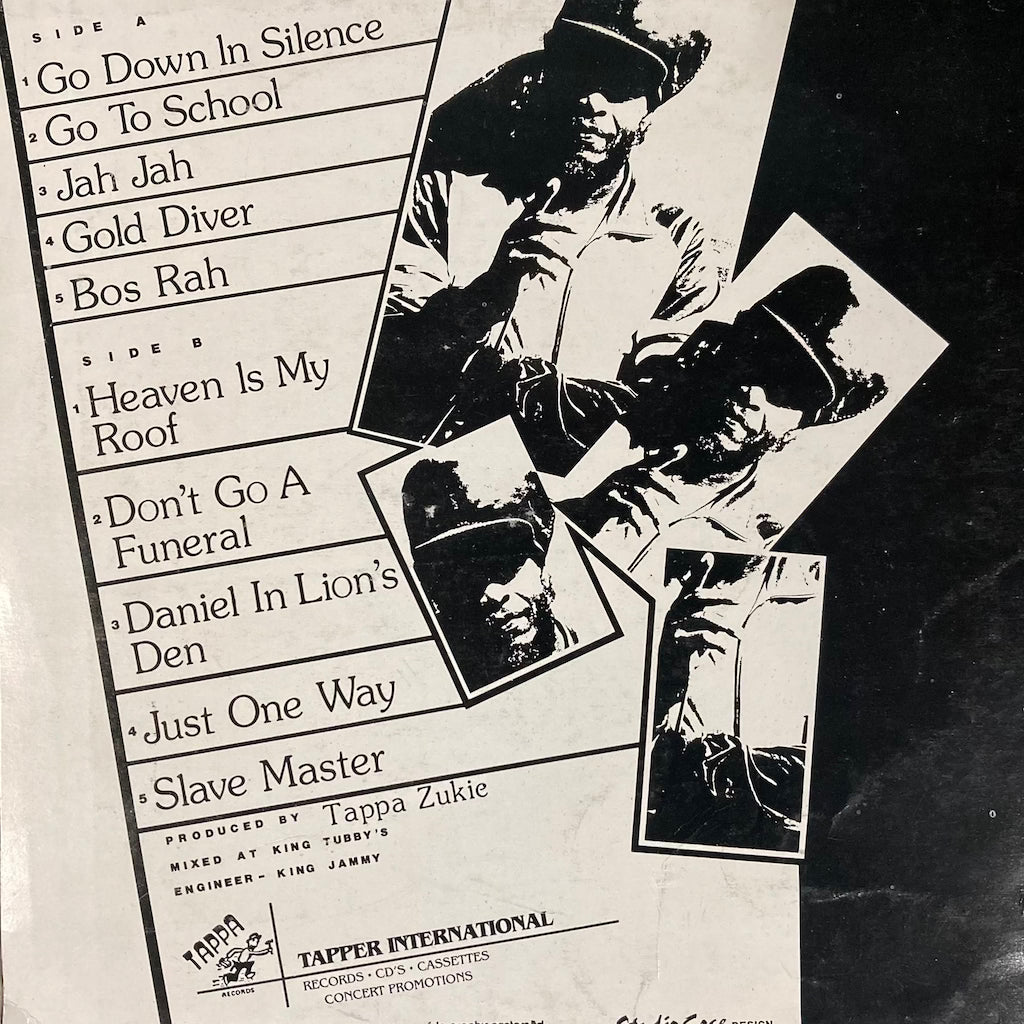 SIDE A
1 Go Down In Silence
2 Go To School
3 Jah Jah
4 Gold Diver
5 Bos Rah
SIDE B
1 Heaven Is My
Roof
2 Don't Go A
Funeral
3 Daniel In Lion's
Den
4 Just One Way
5 Slave Master
PRODUCED BY Tappa Zukie
MIXED AT KING TUBBY'S
ENGINEER - KING JAMMY
TAPPA
RECORDS
TAPPER INTERNATIONAL
RECORDS · CD'S · CASSETTES
CONCERT PROMOTIONS
DESIGN